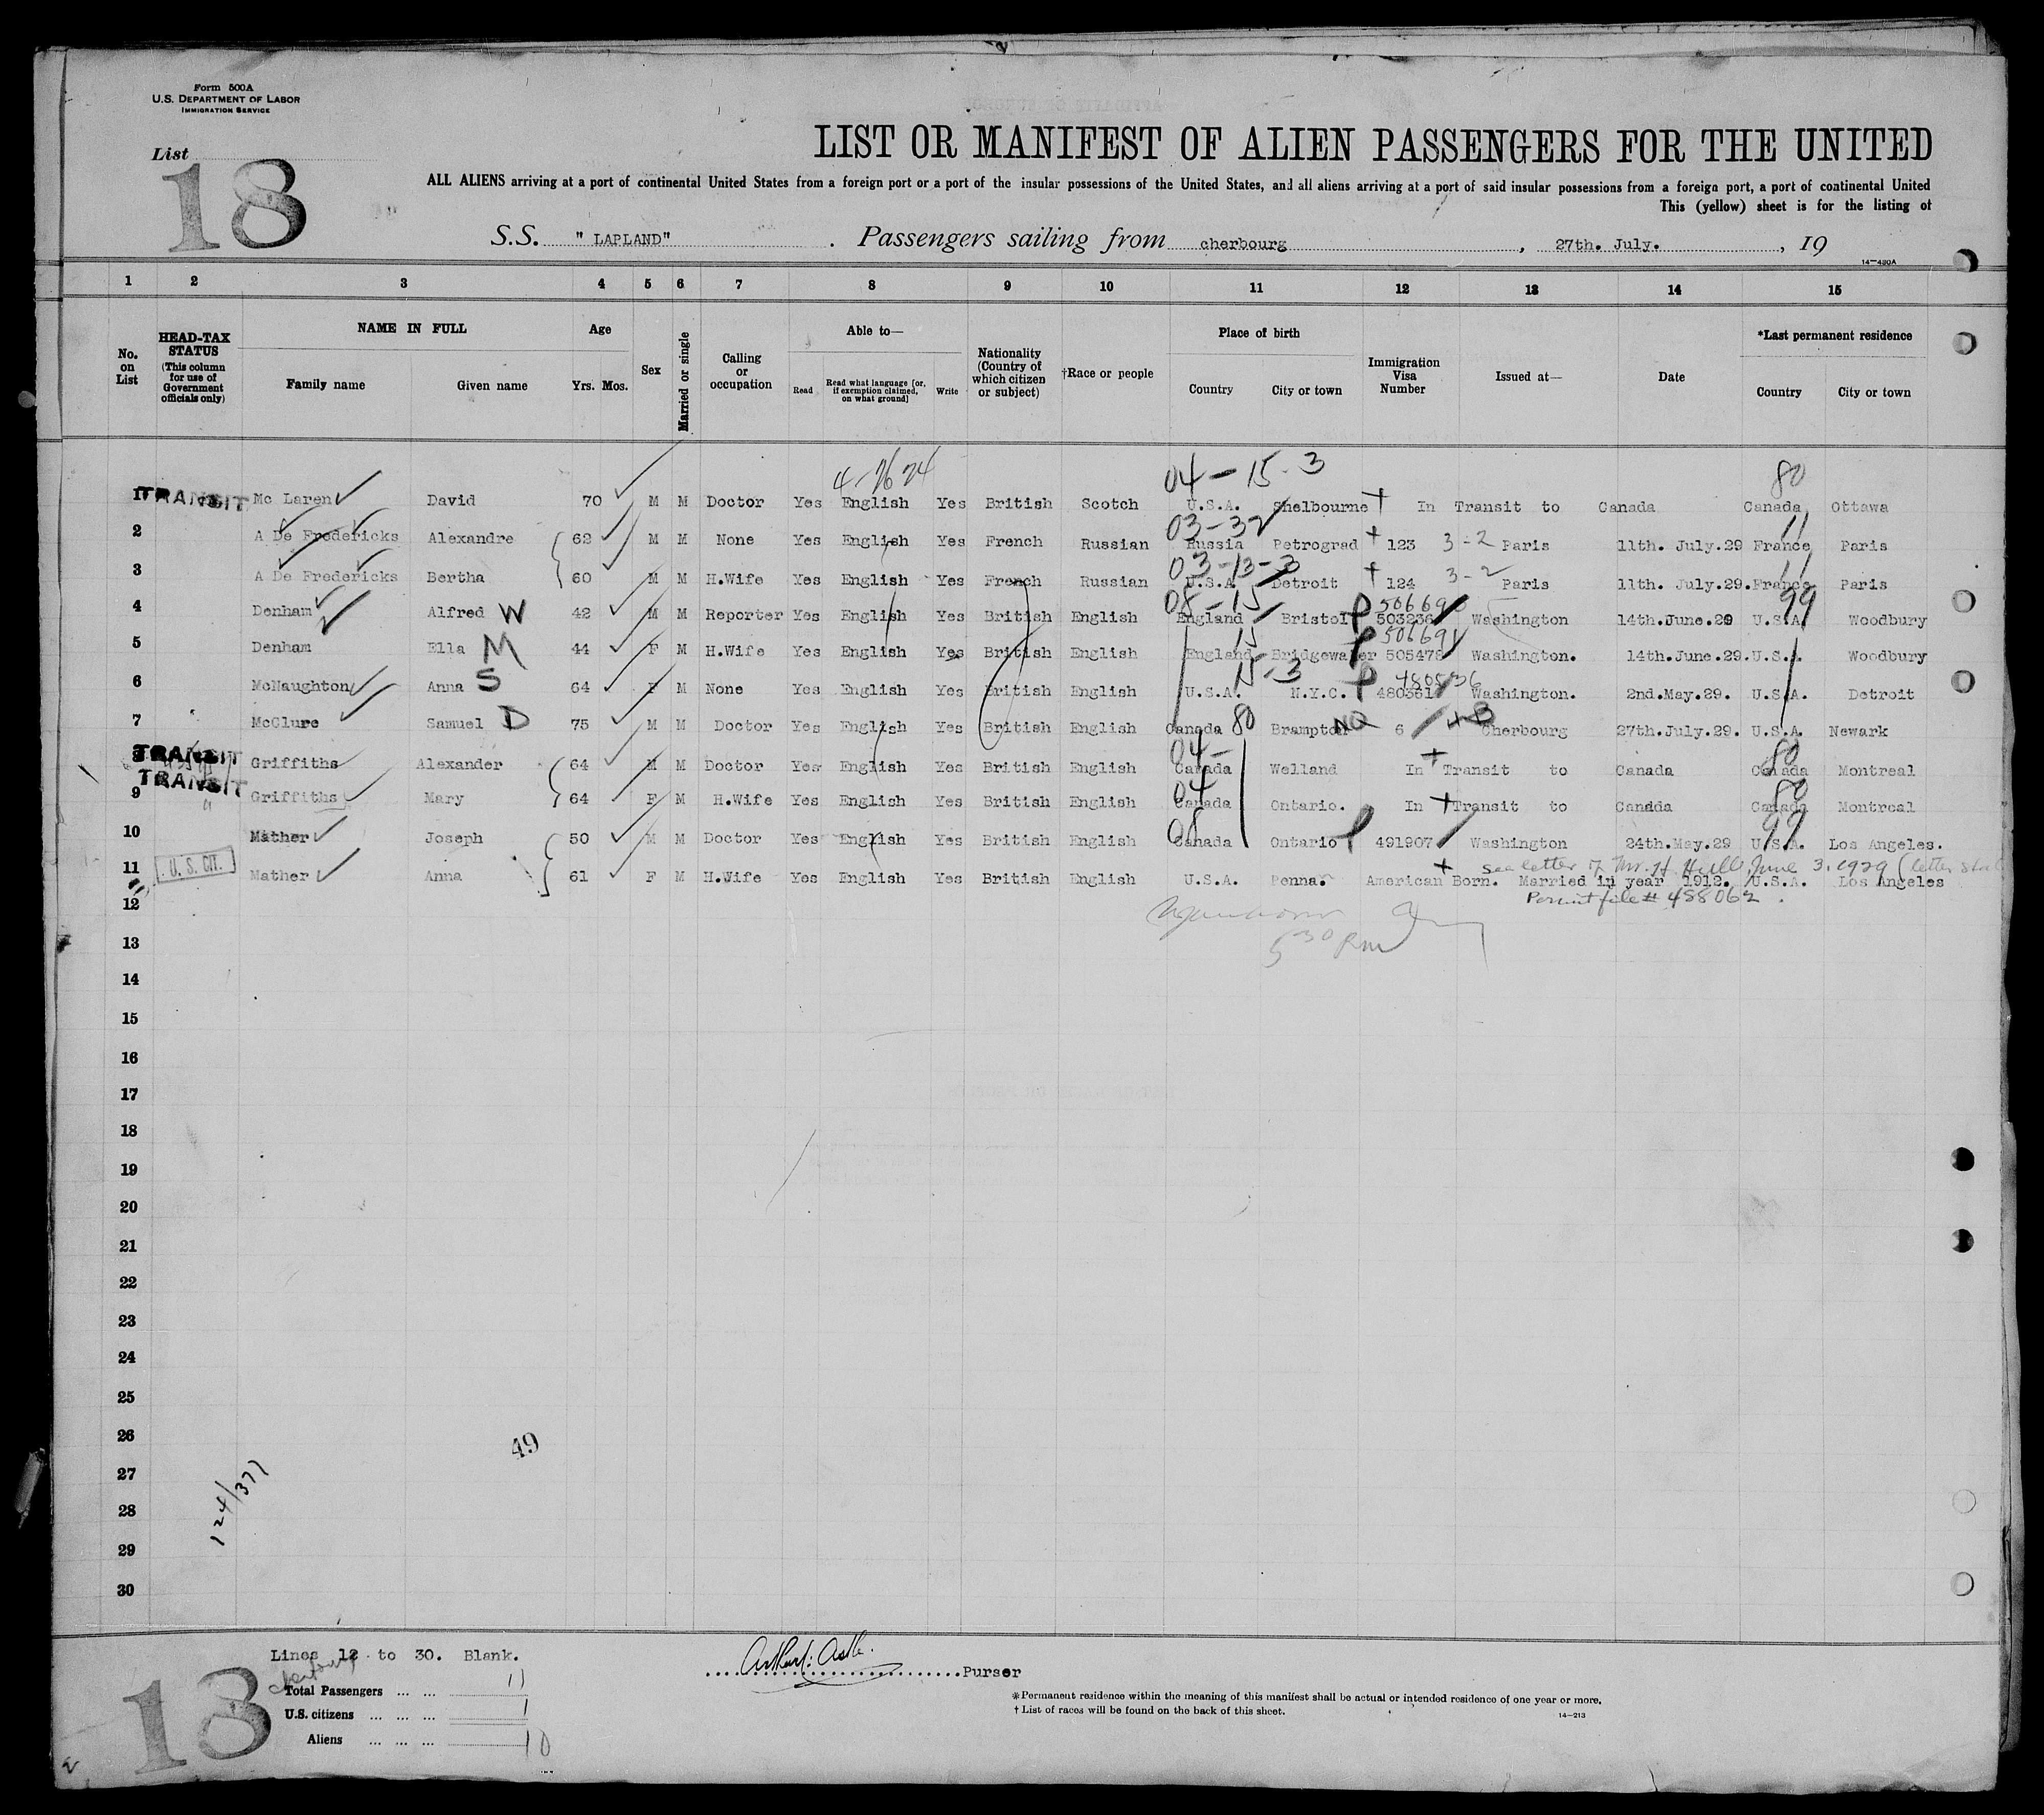 Form 500A
U.S. DEPARTMENT OF LABOR
IMMIGRATION SERVICE
List
18
LIST OR MANIFEST OF ALIEN PASSENGERS FOR THE UNITED
ALL ALIENS arriving at a port of continental United States from a foreign port or a port of the insular possessions of the United States, and all aliens arriving at a port of said insular possessions from a foreign port, a port of continental United
This (yellow) sheet is for the listing of
S.S. " LAPLAND" . Passengers sailing from cherbourg , 27th. July. , 19
14—480A
1 2 3 4 5 6 7 8 9 10 11 12 13 14 15
No. on List
HEAD-TAX STATUS (This column for use of Government officials only)
NAME IN FULL
Family name Given name
Age
Yrs. Mos.
Sex
Married or single
Calling or occupation
Able to—
Read Read what language [or, if exemption claimed, on what ground] Write
Nationality (Country of which citizen or subject)
†Race or people
Place of birth
Country City or town
Immigration Visa Number
Issued at—
Date
*Last permanent residence
Country City or town
04-15-3 80
1 TRANSIT Mc Laren David 70 M M Doctor Yes English Yes British Scotch U.S.A. Shelbourne In Transit to Canada Canada Ottawa
03-32 11
2 A De Fredericks Alexandre 62 M M None Yes English Yes French Russian Russia Petrograd 123 3-2 Paris 11th. July.29 France Paris
03-13-3 11
3 A De Fredericks Bertha 60 M M H.Wife Yes English Yes French Russian U.S.A. Detroit 124 3-2 Paris 11th. July.29. France Paris
08-15 99
4 Denham Alfred W 42 M M Reporter Yes English Yes British English England Bristol P 503236 Washington 14th.June.29 U.S.A. Woodbury
15
5 Denham Ella M 44 F M H.Wife Yes English Yes British English England Bridgewater P 505478 Washington. 14th.June.29. U.S.A. Woodbury
15-3 480536
6 McNaughton Anna S 64 F M None Yes English Yes British English U.S.A. N.Y.C. P 480361 Washington. 2nd.May.29. U.S.A. Detroit
7 McClure Samuel D 75 M M Doctor Yes English Yes British English Canada 80 Brampton NQ 6 Cherbourg 27th.July.29. U.S.A. Newark
04- 80
8 TRANSIT Griffiths Alexander 64 M M Doctor Yes English Yes British English Canada Welland In Transit to Canada Canada Montreal
04 80
9 TRANSIT Griffiths Mary 64 F M H.Wife Yes English Yes British English Canada Ontario. In Transit to Canada Canada Montreal
99
10 Mather Joseph 50 M M Doctor Yes English Yes British English Canada Ontario P 491907 Washington 24th.May.29 U.S.A. Los Angeles.
see letter of Mr. H. Hull June 3, 1929 (letter
11 U. S. CIT. Mather Anna 61 F M H.Wife Yes English Yes British English U.S.A. Penna. American Born. Married in year 1912. U.S.A. Los Angeles
Permit file # 488062
12
5 30 Pm
13
14
15
16
17
18
19
20
21
22
23
24
25
26
49
27
124/377
28
29
30
Lines 12 to 30. Blank.
Total Passengers ... ... 11
U.S. citizens ... ... ... 1
Aliens ... ... ... 10
18
Purser
*Permanent residence within the meaning of this manifest shall be actual or intended residence of one year or more.
† List of races will be found on the back of this sheet.
14—213